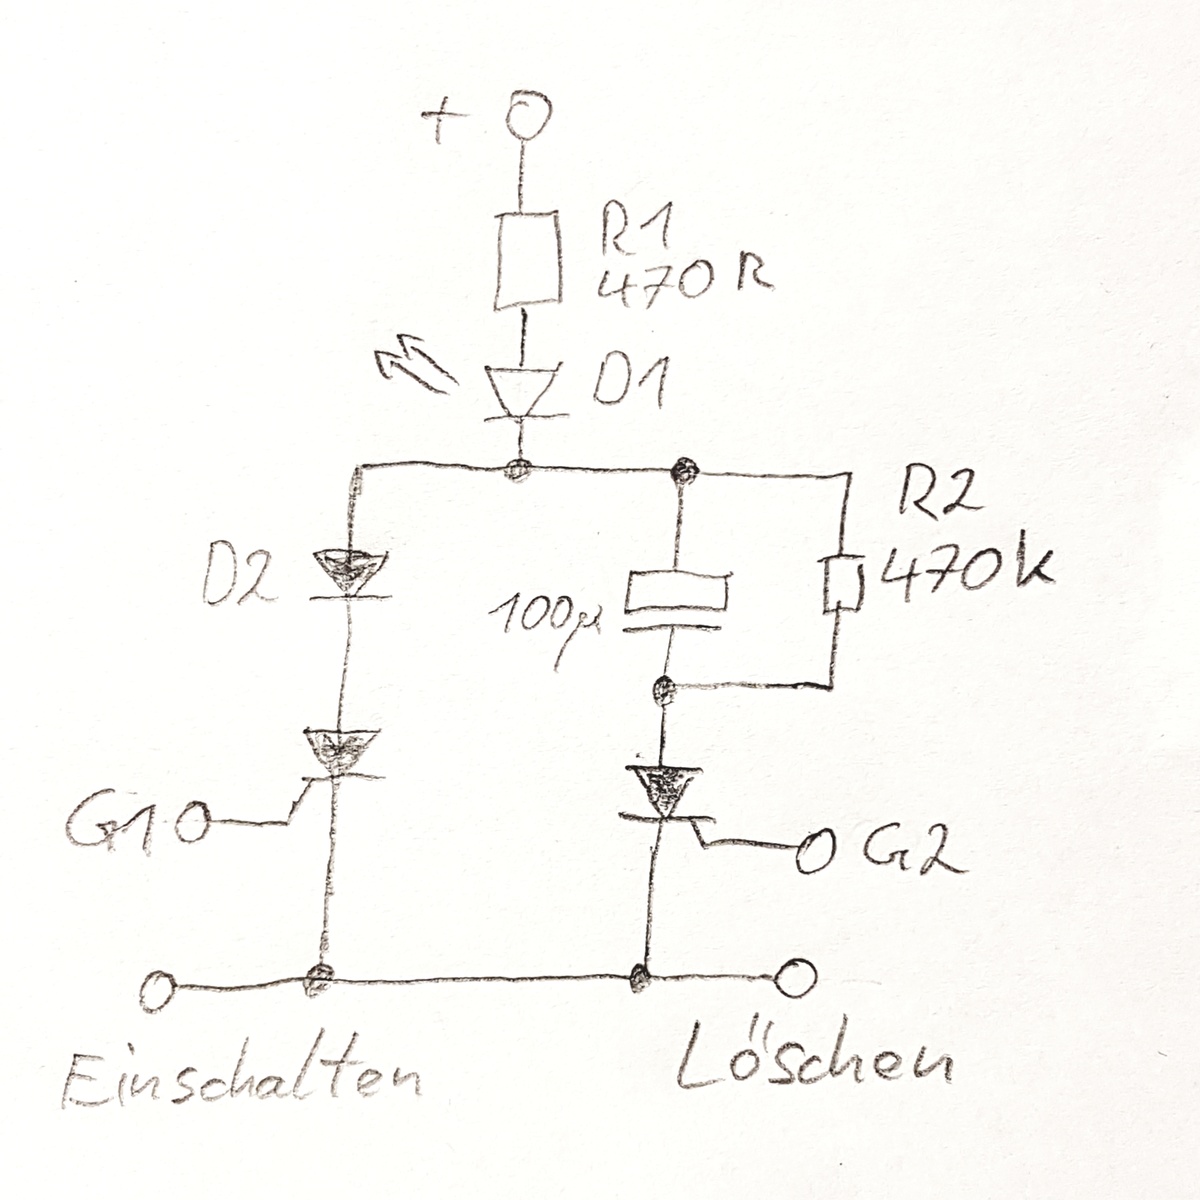 +
R1
470R
D1
R2
470k
D2
100µ
G1
G2
Einschalten
Löschen